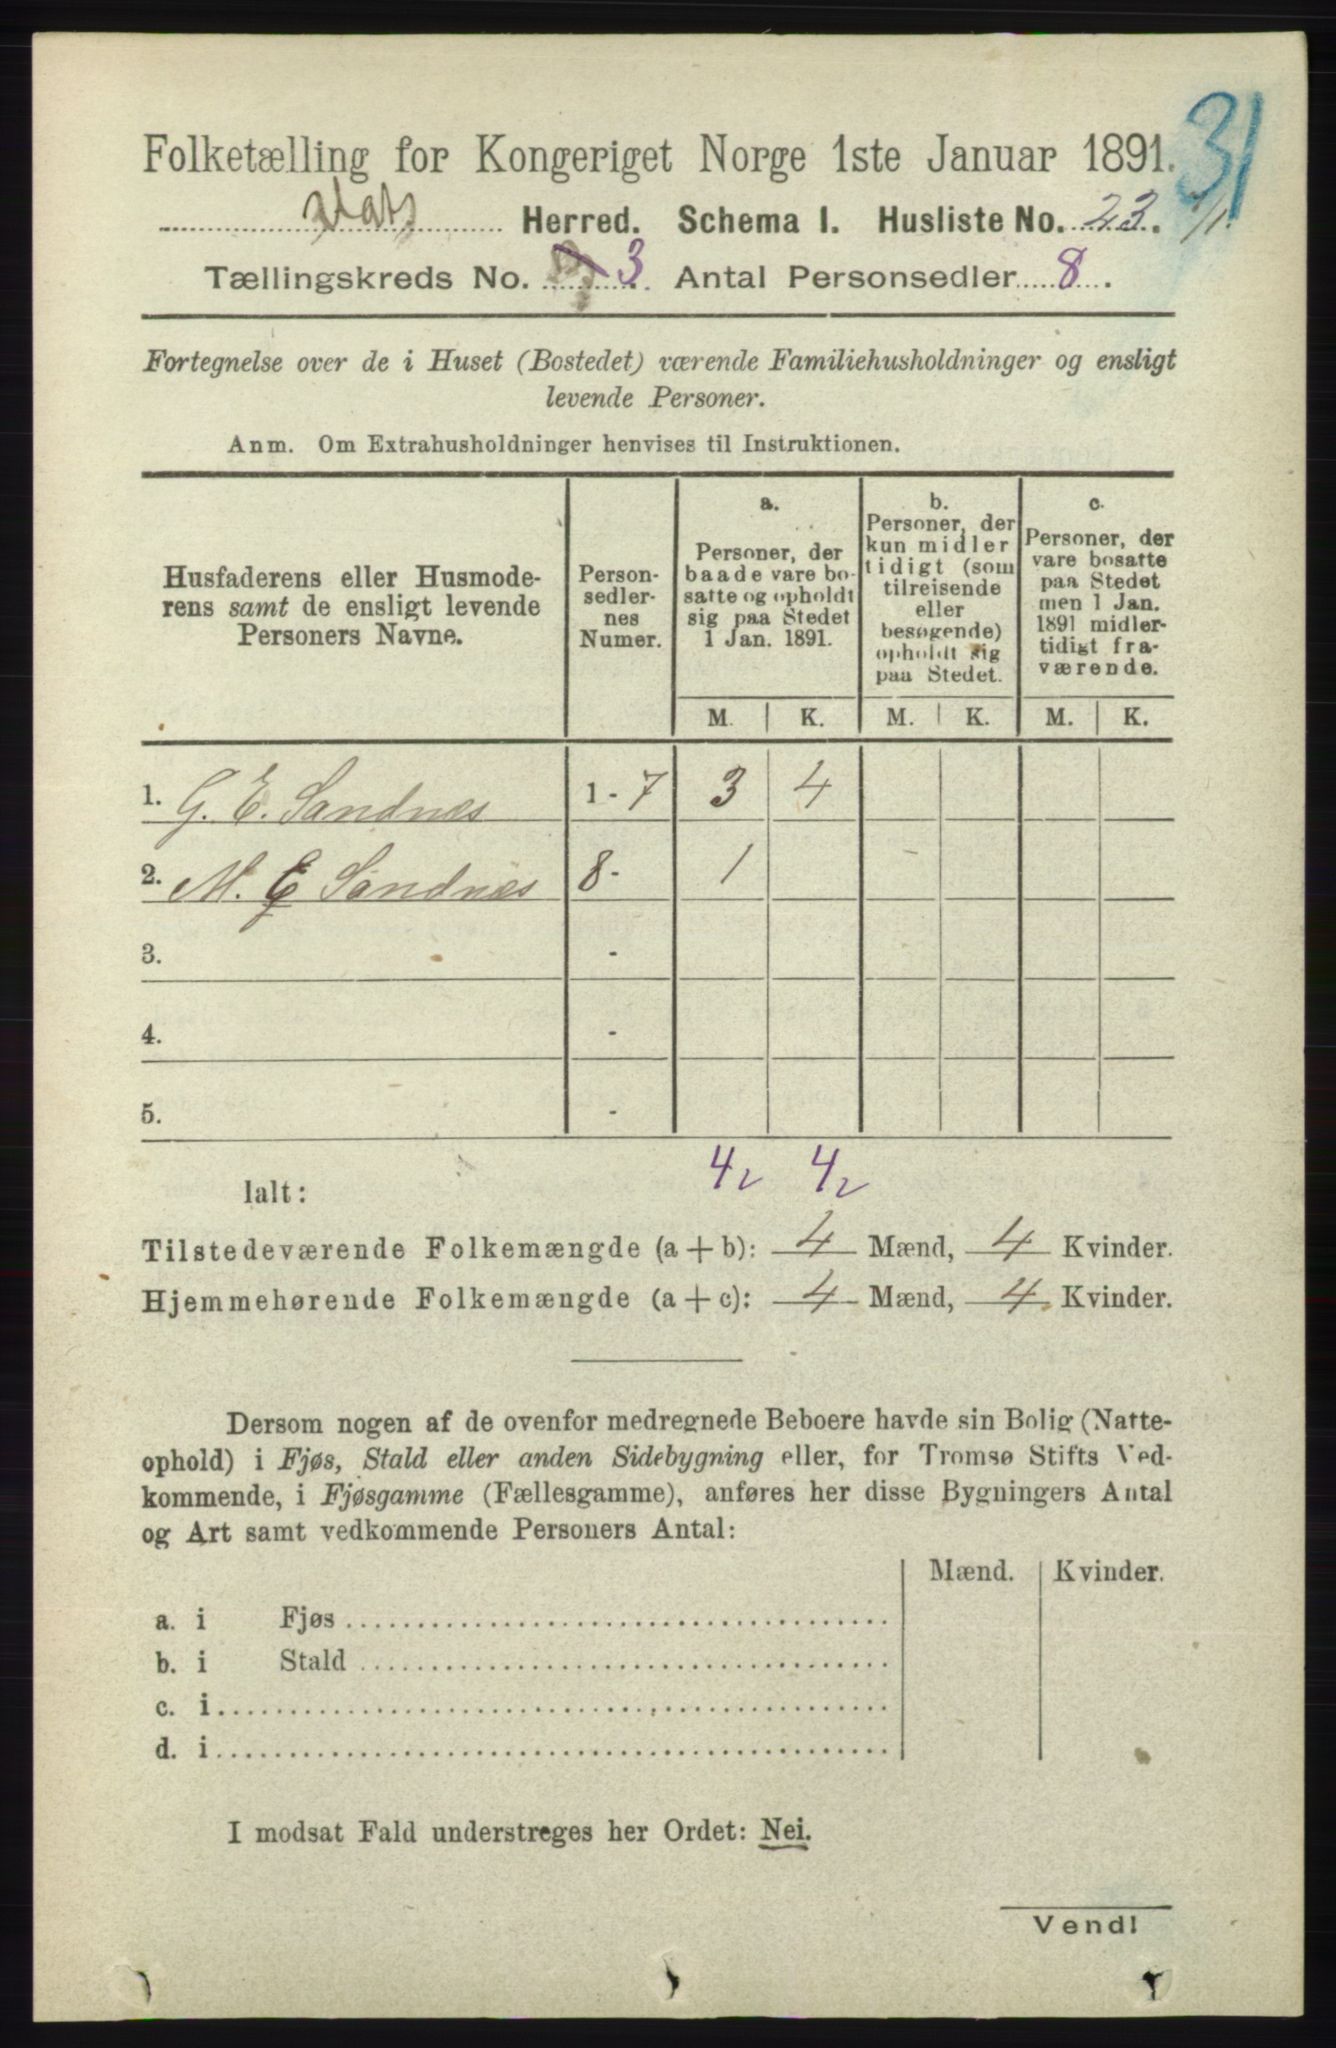 31
Folketælling for Kongeriget Norge 1ste Januar 1891.
Herred. Schema I. Husliste No. 23. 1/1.
Tællingskreds No. 3. Antal Personsedler 8.
Fortegnelse over de i Huset (Bostedet) værende Familiehusholdninger og ensligt
levende Personer.
Anm. Om Extrahusholdninger henvises til Instruktionen.
Husfaderens eller Husmode-
rens samt de ensligt levende
Personers Navne.
Person-
sedler-
nes
Numer.
a.
Personer, der
baade vare bo-
satte og opholdt
sig paa Stedet
1 Jan. 1891.
b.
Personer, der
kun midler
tidigt (som
tilreisende
eller
besøgende)
opholdt sig
paa Stedet.
c.
Personer, der
vare bosatte
paa Stedet
men 1 Jan.
1891 midler-
tidigt fra-
værende.
M. K. M. K. M. K.
1. G. E. Sandnes 1-7 3 4
2. M. E Sandnes 8- 1
3. -
4. -
5. -
4 4
Ialt:
Tilstedeværende Folkemængde (a + b): 4 Mænd, 4 Kvinder.
Hjemmehørende Folkemængde (a + c): 4 Mænd, 4 Kvinder.
Dersom nogen af de ovenfor medregnede Beboere havde sin Bolig (Natte-
ophold) i Fjøs, Stald eller anden Sidebygning eller, for Tromsø Stifts Ved-
kommende, i Fjøsgamme (Fællesgamme), anføres her disse Bygningers Antal
og Art samt vedkommende Personers Antal:
Mænd. Kvinder.
a. i Fjøs
b. i Stald
c. i
d. i
I modsat Fald understreges her Ordet: Nei.
Vend!